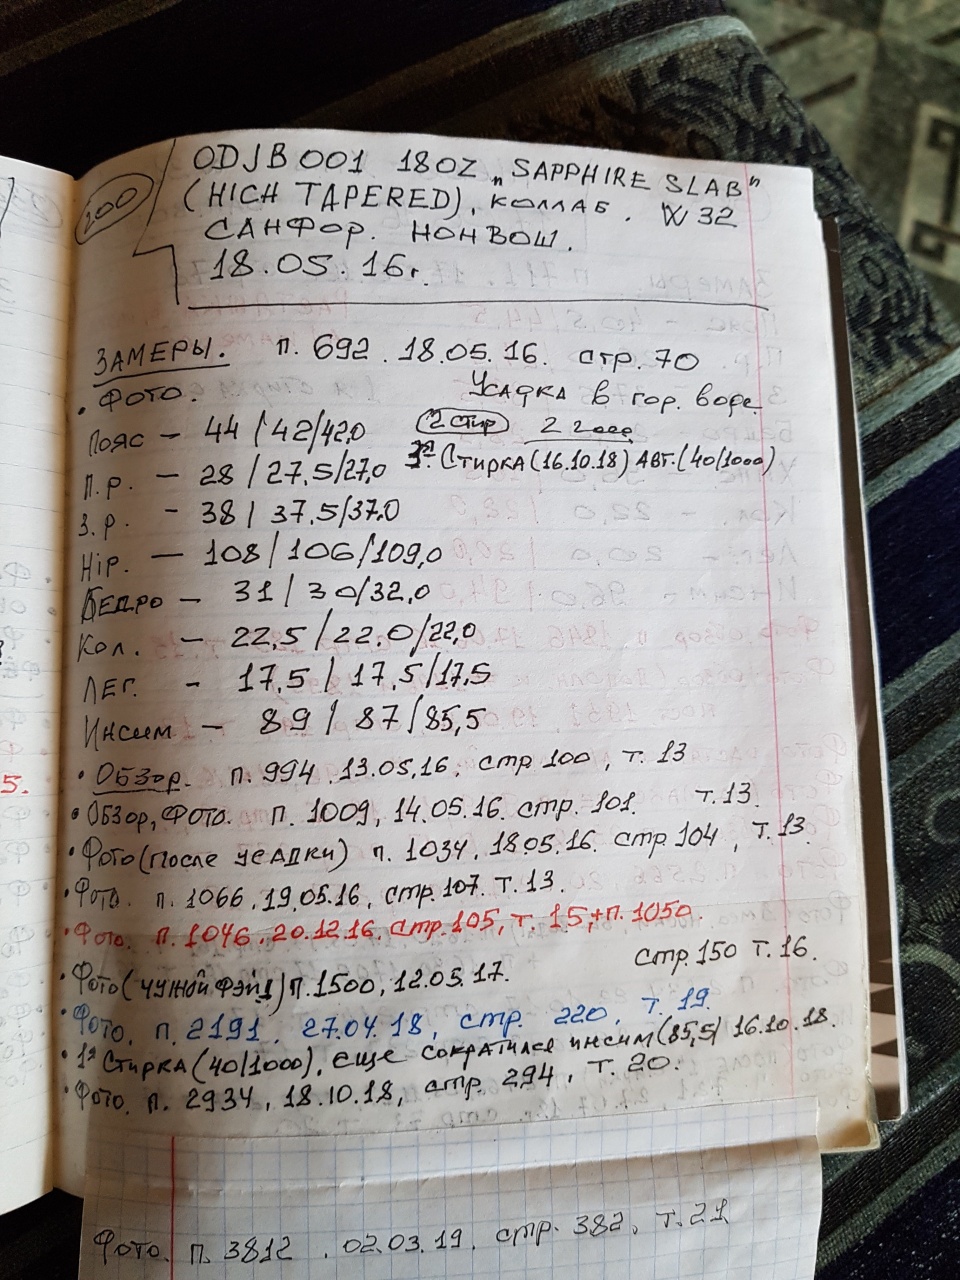 200
ODJB001 18OZ „SAPPHIRE SLAB"
(HICH TAPERED), КОЛЛАБ. W32
САНФОР. НОНВОШ.
18.05.16г.
ЗАМЕРЫ. п. 692. 18.05.16. стр. 70
• ФОТО. Усадка в гор. воде
Пояс – 44 / 42/42,0 (2 стир) 2 2000
П.р. – 28 / 27,5/27,0 Стирка (16.10.18) АВТ. (40/1000)
З.р. – 38 / 37,5/37,0
Hip. – 108 / 106 / 109,0
БЕДРО – 31 / 30/32,0
Кол. – 22,5 / 22,0/22,0
ЛЕГ. – 17,5 / 17,5/17,5
Инсим – 89 / 87 / 85,5
• Обзор. п. 994. 13.05.16. стр 100, т. 13
• Обзор, Фото. п. 1009, 14.05.16. стр. 101. т.13.
• Фото (после усадки) п. 1034, 18.05.16. стр 104, т. 13.
• Фото. п. 1066, 19.05.16, стр. 107. т.13.
• Фото. п. 1046. 20.12.16. стр. 105, т. 15, + п. 1050.
стр. 150 т. 16.
• Фото (чужой фэйд) п. 1500, 12.05.17.
• Фото. п. 2191. 27.04.18, стр. 220, т. 19.
• 1я Стирка (40/1000), еще сократился инсим (85,5) 16.10.18.
• Фото. п. 2934, 18.10.18, стр. 294, т. 20.
Фото. п. 3812. 02.03.19. стр. 382, т. 21
5.